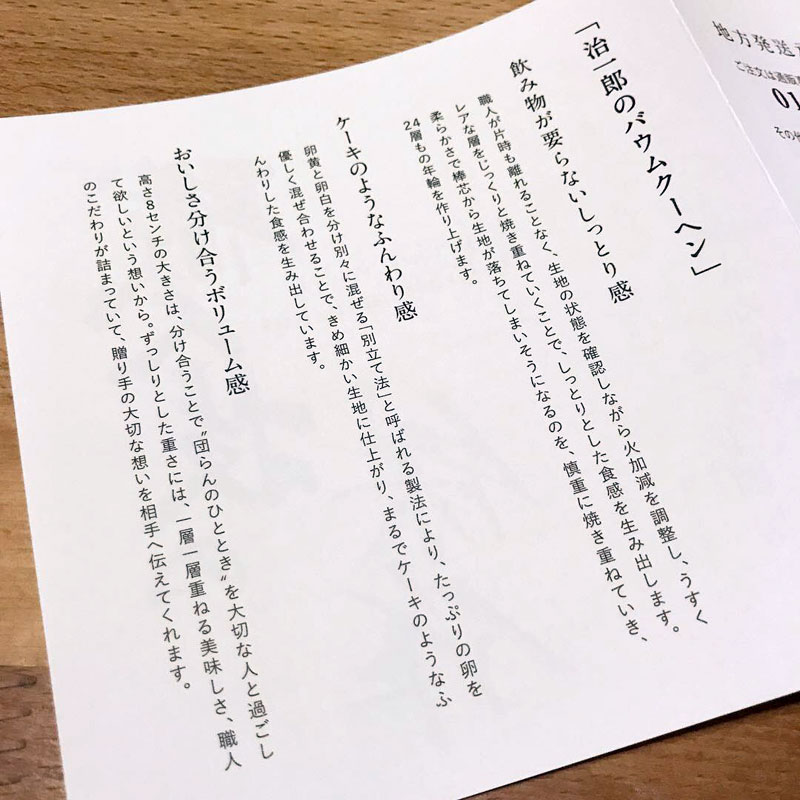 地方発送
ご注文は通販
01
その他
「治一郎のバウムクーヘン」
飲み物が要らないしっとり感
職人が片時も離れることなく、生地の状態を確認しながら火加減を調整し、うすく
レアな層をじっくりと焼き重ねていくことで、しっとりとした食感を生み出します。
柔らかさで棒芯から生地が落ちてしまいそうになるのを、慎重に焼き重ねていき、
24層もの年輪を作り上げます。
ケーキのようなふんわり感
卵黄と卵白を分け別々に混ぜる「別立て法」と呼ばれる製法により、たっぷりの卵を
優しく混ぜ合わせることで、きめ細かい生地に仕上がり、まるでケーキのようなふ
んわりした食感を生み出しています。
おいしさ分け合うボリューム感
高さ8センチの大きさは、分け合うことで“団らんのひととき”を大切な人と過ごし
て欲しいという想いから。ずっしりとした重さには、一層一層重ねる美味しさ、職人
のこだわりが詰まっていて、贈り手の大切な想いを相手へ伝えてくれます。